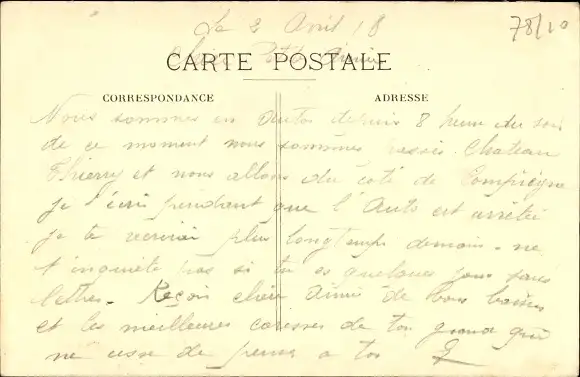 Le 2 Avril 18
78/10
Chère Petite Aimée
CARTE POSTALE
CORRESPONDANCE
ADRESSE
Nous sommes en Autos depuis 8 heure du soir
de ce moment nous sommes Chateau
Thierry et nous allons du coté de Compiègne
je t'écris pendant que l'Auto est arrêtée
je te plus longtemps demain. ne
t'inquiète pas si tu es quelques jours sans
lettres. Reçois chère Aimée de bons baisers
et les meilleures caresses de ton grand qui
ne cesse de penser a toi